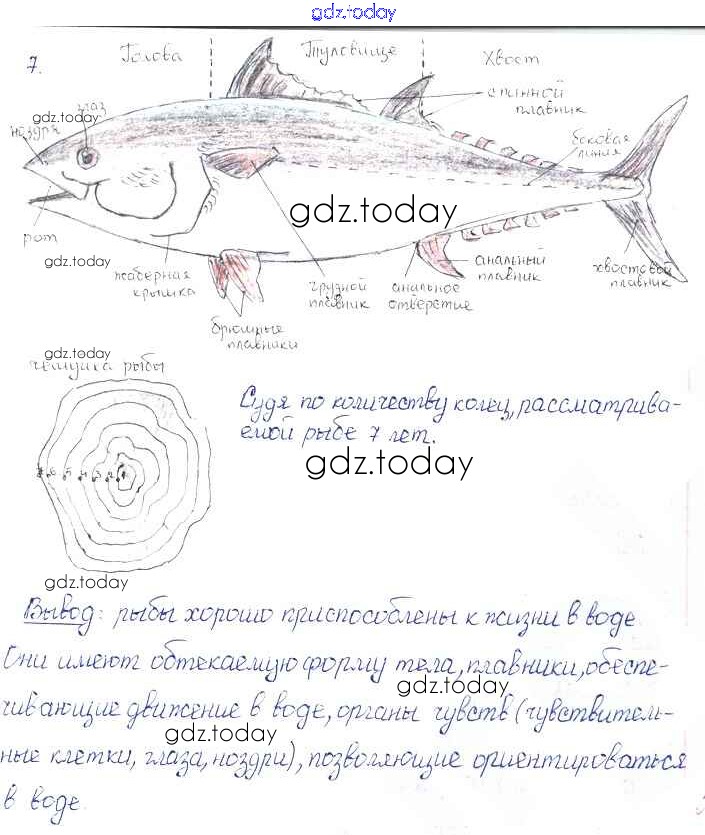 gdz.today
7.
Голова
Туловище
Хвост
спинной
плавник
gdz.today
глаз
ноздря
боковая
линия
gdz.today
рот
gdz.today
жаберная
крышка
грузной
плавник
анальное
отверстие
анальный
плавник
хвостовой
плавник
брюшные
плавники
gdz.today
чешуйка рыбы
7 6 5 4 3 2 1
Судя по количеству колец, рассматрива-
емой рыбе 7 лет.
gdz.today
gdz.today
Вывод: рыбы хорошо приспособлены к жизни в воде
Они имеют обтекаемую форму тела, плавники, обеспе-
gdz.today
чивающие движение в воде, органы чувств (чувствитель-
gdz.today
ные клетки, глаза, ноздри), позволяющие ориентироваться
в воде.